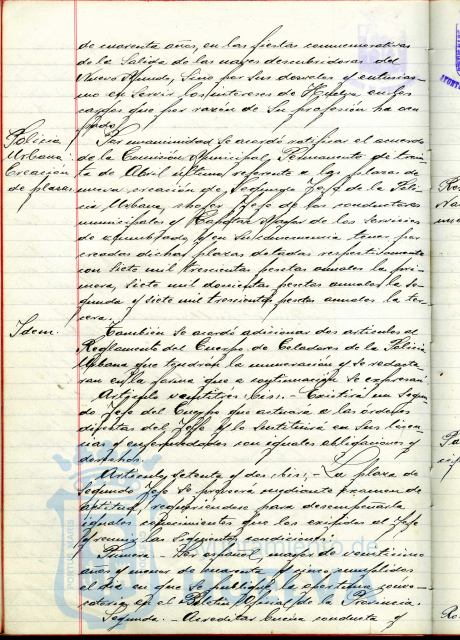 de cuarenta años, en las fiestas conmemorativas
de la Salida de las naves descubridoras del
Nuevo Mundo, sino por sus desvelos y entusias-
mo en servir los intereses de Huelva en los
cargos que por razón de su profesión ha ocu
pado.
Policia
Urbana
Creación
de plazas
Por unanimidad se acordó ratificar el acuerdo
de la Comisión Municipal Permanente de trein
ta de Abril último, referente a las plazas de
nueva creación de Segundo Jefe de la Poli
cia Urbana, chofer Jefe de los conductores
municipales y Capataz Mayor de los Servicios
de alumbrado, y en su consecuencia tener por
creadas dichas plazas dotadas respectivamente
con siete mil trescientas pesetas anuales la pri
mera, siete mil doscientas pesetas anuales la se
gunda y siete mil trescientas pesetas anuales la ter
cera.
Idem.
También se acordó adicionar dos artículos al
Reglamento del Cuerpo de Celadores de la Policia
Urbana que tendrán la numeración y se redacta
ran en la forma que a continuación se expresan
Artículo veintitres, bis.- Existirá un Segun
do Jefe del Cuerpo que actuará a las órdenes
directas del Jefe y lo sustituirá en sus licen
cias y enfermedades con iguales obligaciones y
derechos.
Artículo setenta y dos, bis.- La plaza de
Segundo Jefe se proveerá mediante examen de
aptitud, requiriéndose para desempeñarla
iguales conocimientos que los exigidos al Jefe
y reunir las siguientes condiciones:
Primera.- mayor de veinticinco
años y menor de cuarenta y cinco cumplidos
el día en que se publique la oportuna convo-
catoria en el Boletín Oficial de la Provincia.
Segunda.- Acreditar buena conducta y
Ayuntamiento de
HUELVA
PORTUS MARIS